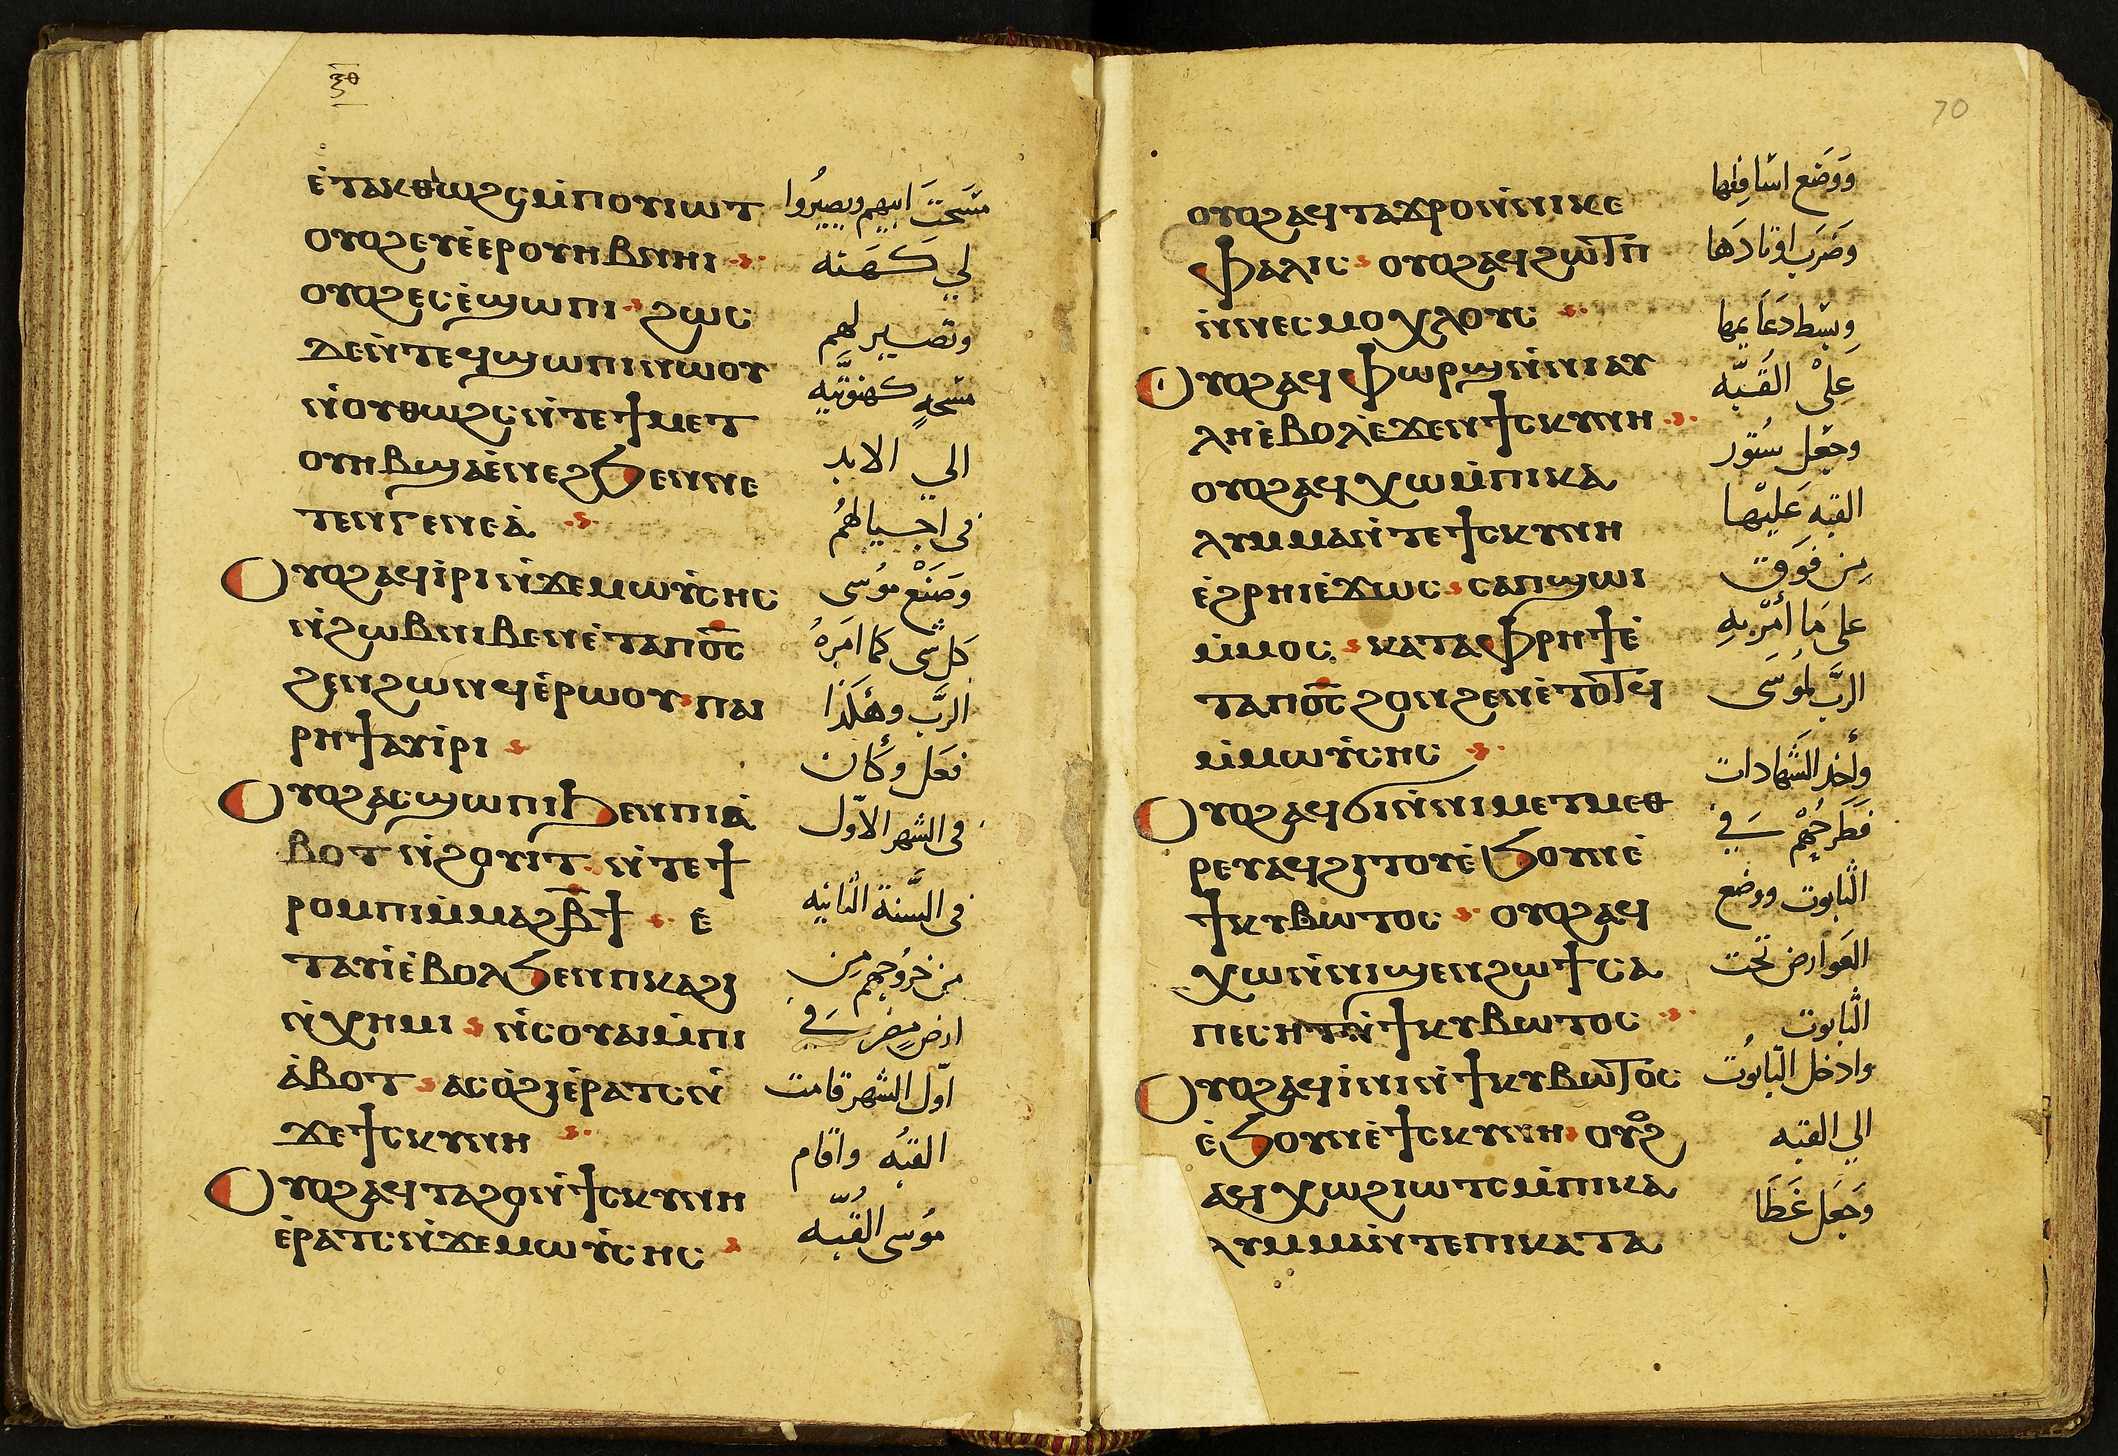 ⲝ̅ⲑ̅
ⲉ̀ⲧⲁⲕⲑⲱϩⲥ ⲙ̀ⲡⲟⲩⲓⲱⲧ
ⲟⲩⲟϩ ⲉⲩⲉ̀ⲉⲣⲟⲩⲏⲃ ⲛⲏⲓ
ⲟⲩⲟϩ ⲉⲥⲉ̀ϣⲱⲡⲓ ϩⲱⲥ
ⲇⲉ ⲛ̀ⲧⲉϥϣⲱⲡⲓ ⲛⲱⲟⲩ
ⲛ̀ⲟⲩⲑⲱϩⲥ ⲛ̀ⲧⲉ ϯⲙⲉⲧ
ⲟⲩⲏⲃ ϣⲁ ⲉ̀ⲛⲉϩ ϧⲉⲛ ⲛⲉ
ⲧⲉⲛⲅⲉⲛⲉⲁ̀
Ⲟⲩⲟϩ ⲁϥⲓ̀ⲣⲓ ⲛ̀ϫⲉ ⲙⲱⲩ̈ⲥⲏⲥ
ⲛ̀ϩⲱⲃ ⲛⲓⲃⲉⲛ ⲉ̀ⲧⲁ ⲡⲟ̅ⲥ̅
ϩⲉⲛϩⲱⲛϥ ⲉ̀ⲣⲱⲟⲩ ⲡⲁⲓ
ⲣⲏϯ ⲁⲩⲓ̀ⲣⲓ
Ⲟⲩⲟϩ ⲁⲥϣⲱⲡⲓ ϧⲉⲛ ⲡⲓⲁ̀
ⲃⲟⲧ ⲛ̀ϩⲟⲩⲓⲧ ⲛ̀ⲧⲉ ϯ
ⲣⲟⲙⲡⲓ ⲙ̀ⲙⲁϩⲃ̅ϯ ⲉ̀
ⲧⲁⲩⲓ̀ ⲉ̀ⲃⲟⲗ ϧⲉⲛ ⲡⲕⲁϩⲓ
ⲛ̀ⲭⲏⲙⲓ ⲛ̀ⲥⲟⲩⲁⲓ ⲙ̀ⲡⲓ
ⲁ̀ⲃⲟⲧ ⲁⲥⲟ̀ϩⲓ ⲉ̀ⲣⲁⲧⲥ ⲛ̀
ϫⲉ ϯⲥⲕⲩⲛⲏ
Ⲟⲩⲟϩ ⲁϥⲧⲁϩⲟ ⲛ̀ϯⲥⲕⲩⲛⲏ
ⲉ̀ⲣⲁⲧⲥ ⲛ̀ϫⲉ ⲙⲱⲩ̈ⲥⲏⲥ
مَسَحتَ ابيهم ويصيرُوا
لي كَهَنه
وتصير لهم
مَسحةٍ كهنوتيَّه
الي الابد
في اجيالهُم
وصَنَع مُوسى
كل شى كما امَرهُ
الرَّب وهٰكَذا
فعَل وكان
في الشهر الاوّل
في السَّنة الثانيه
من خروُجهم من
ارض مِصْر في
اوّل الشهر قامت
القبُه واقام
مُوسى القُبّه
70
ⲟⲩⲟϩ ⲁϥⲧⲁϫⲣⲟ ⲛ̀ⲛⲓⲕⲉ
ⲫⲁⲗⲓⲥ ⲟⲩⲟϩ ⲁϥϩⲱⲧⲡ
ⲛ̀ⲛⲉⲥⲙⲟⲭⲗⲟⲩⲥ
Ⲟⲩⲟϩ ⲁϥⲫⲱⲣϣ ⲛ̀ⲛⲓⲁⲩ
ⲗⲏ ⲉ̀ⲃⲟⲗ ⲉϫⲉⲛ ϯⲥⲕⲩⲛⲏ
ⲟⲩⲟϩ ⲁϥⲭⲱ ⲙ̀ⲡⲓⲕⲁ
ⲗⲩⲙⲙⲁ ⲛ̀ⲧⲉ ϯⲥⲕⲩⲛⲏ
ⲉ̀ϩⲣⲏⲓ ⲉ̀ϫⲱⲥ ⲥⲁⲡϣⲱⲓ
ⲙ̀ⲙⲟⲥ ⲕⲁⲧⲁ ⲫⲣⲏϯ ⲉ̀
ⲧⲁ ⲡⲟ̅ⲥ̅ ϩⲟⲛϩⲉⲛ ⲉ̀ⲧⲟⲧϥ
ⲙ̀ⲙⲱⲩ̈ⲥⲏⲥ
Ⲟⲩⲟϩ ⲁϥϭⲓ ⲛ̀ⲛⲓⲙⲉⲧⲙⲉⲑ
ⲣⲉⲩ ⲁϥϩⲓⲧⲟⲩ ⲉ̀ϧⲟⲩⲛ ⲉ̀
ϯⲕⲩⲃⲱⲧⲟⲥ ⲟⲩⲟϩ ⲁϥ
ⲭⲱ ⲛ̀ⲛⲓϣⲉⲛϩⲱϯ ⲥⲁ
ⲡⲉⲥⲏⲧ ⲛ̀ϯⲕⲩⲃⲱⲧⲟⲥ
Ⲟⲩⲟϩ ⲁϥⲓ̀ⲛⲓ ⲛ̀ϯⲕⲩⲃⲱⲧⲟⲥ
ⲉ̀ϧⲟⲩⲛ ⲉ̀ϯⲥⲕⲩⲛⲏ ⲟⲩⲟϩ
ⲁϥⲭⲱ ϩⲓⲱⲧⲥ ⲙ̀ⲡⲓⲕⲁ
ⲗⲩⲙⲙⲁ ⲛ̀ⲧⲉ ⲡⲓⲕⲁⲧⲁ
وَوَضَع اسَافِلها
وضَرَب اوتادَها
وبسَط دَعَايمها
عَلىْ القُبّه
وجَعَل سُتور
القبه عَليْها
من فوَق
على مَا أمَر به
الرَّب لموُسَى
وأخد الشَهادات
فطَرحَهُمْ في
التابوت ووضع
العَوارض تحت
التابوت
وادخل التابوُت
الي القبّه
وَجَعَل غَطَا